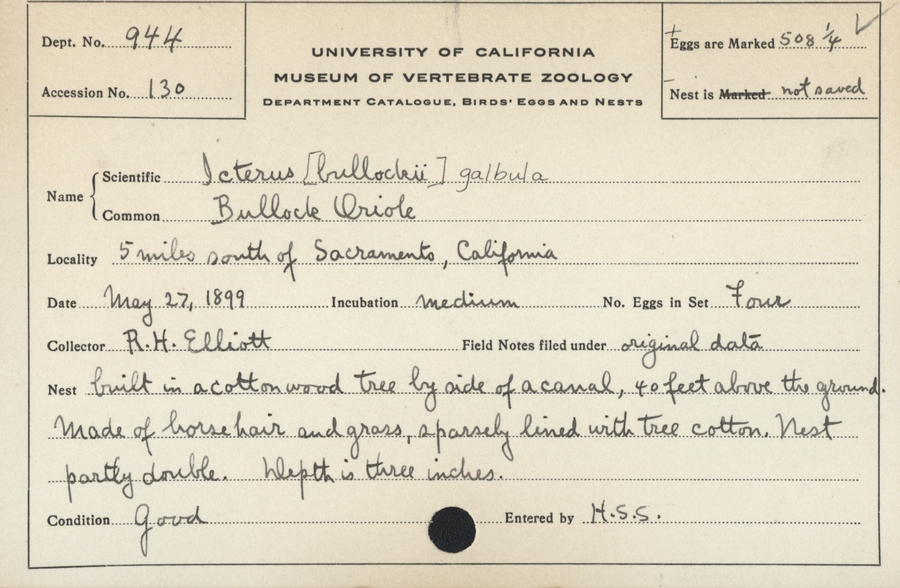 Dept. No. 944
Accession No. 130
UNIVERSITY OF CALIFORNIA
MUSEUM OF VERTEBRATE ZOOLOGY
DEPARTMENT CATALOGUE, BIRDS' EGGS AND NESTS
+ Eggs are Marked 508 1/4 ✓
- Nest is Marked not saved
Name { Scientific Icterus [bullockii] galbula
Common Bullock Oriole
Locality 5 miles south of Sacramento, California
Date May 27, 1899 Incubation medium No. Eggs in Set Four
Collector R.H. Elliott Field Notes filed under original data
Nest built in a cottonwood tree by side of a canal, 40 feet above the ground.
Made of horsehair and grass, sparsely lined with tree cotton. Nest
partly double. Depth is three inches.
Condition Good Entered by H.S.S.